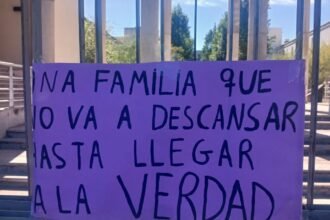 UNA FAMILIA QUE
NO VA A DESCANSAR
HASTA LLEGAR
A LA VERDAD